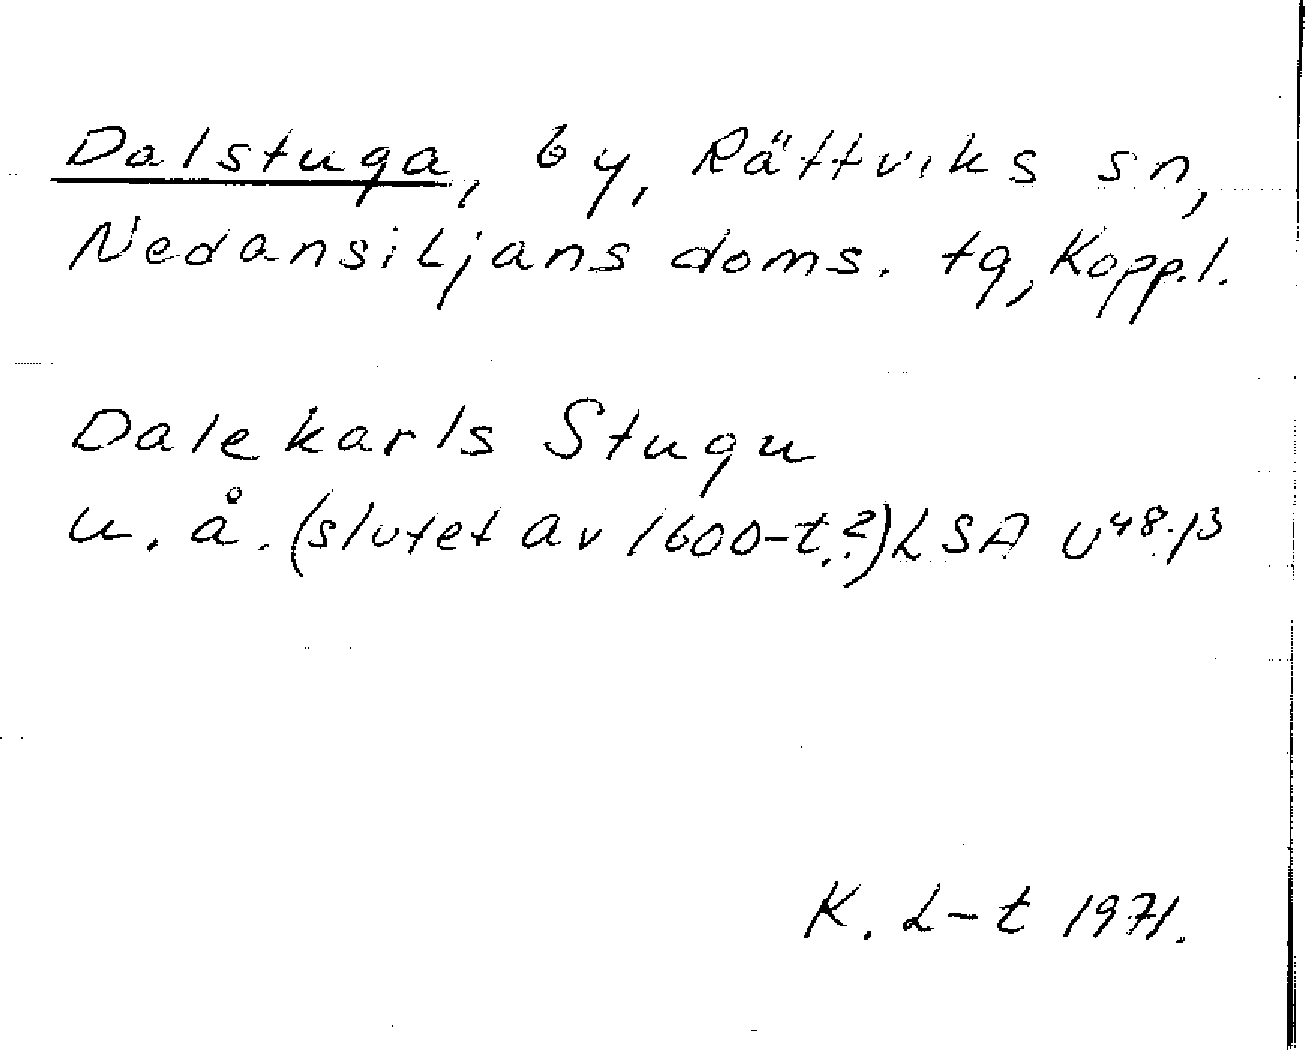 Dalstuga, by, Rättviks sn,
Nedansiljans doms. tg, Kopp.l.
Dalekarls Stugu
u. å. (slutet av 1600-t.?) LSA U48:13
K. L-t 1971.